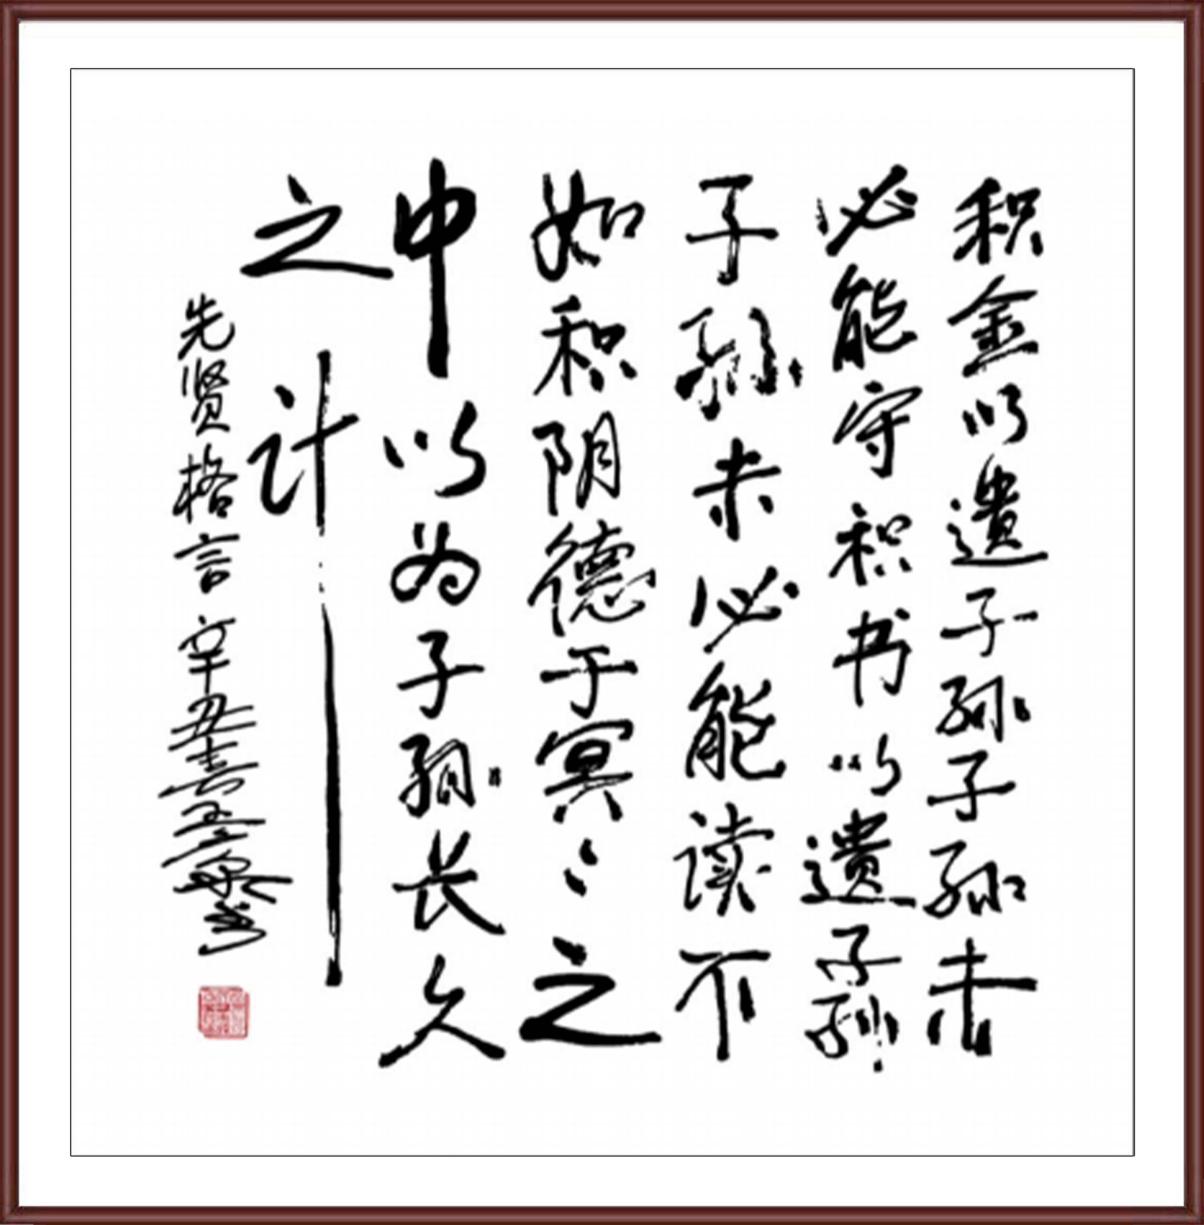 积金以遗子孙子孙未
必能守积书以遗子孙
子孙未必能读不
如积阴德于冥冥之
中以为子孙长久
之计
先贤格言辛丑